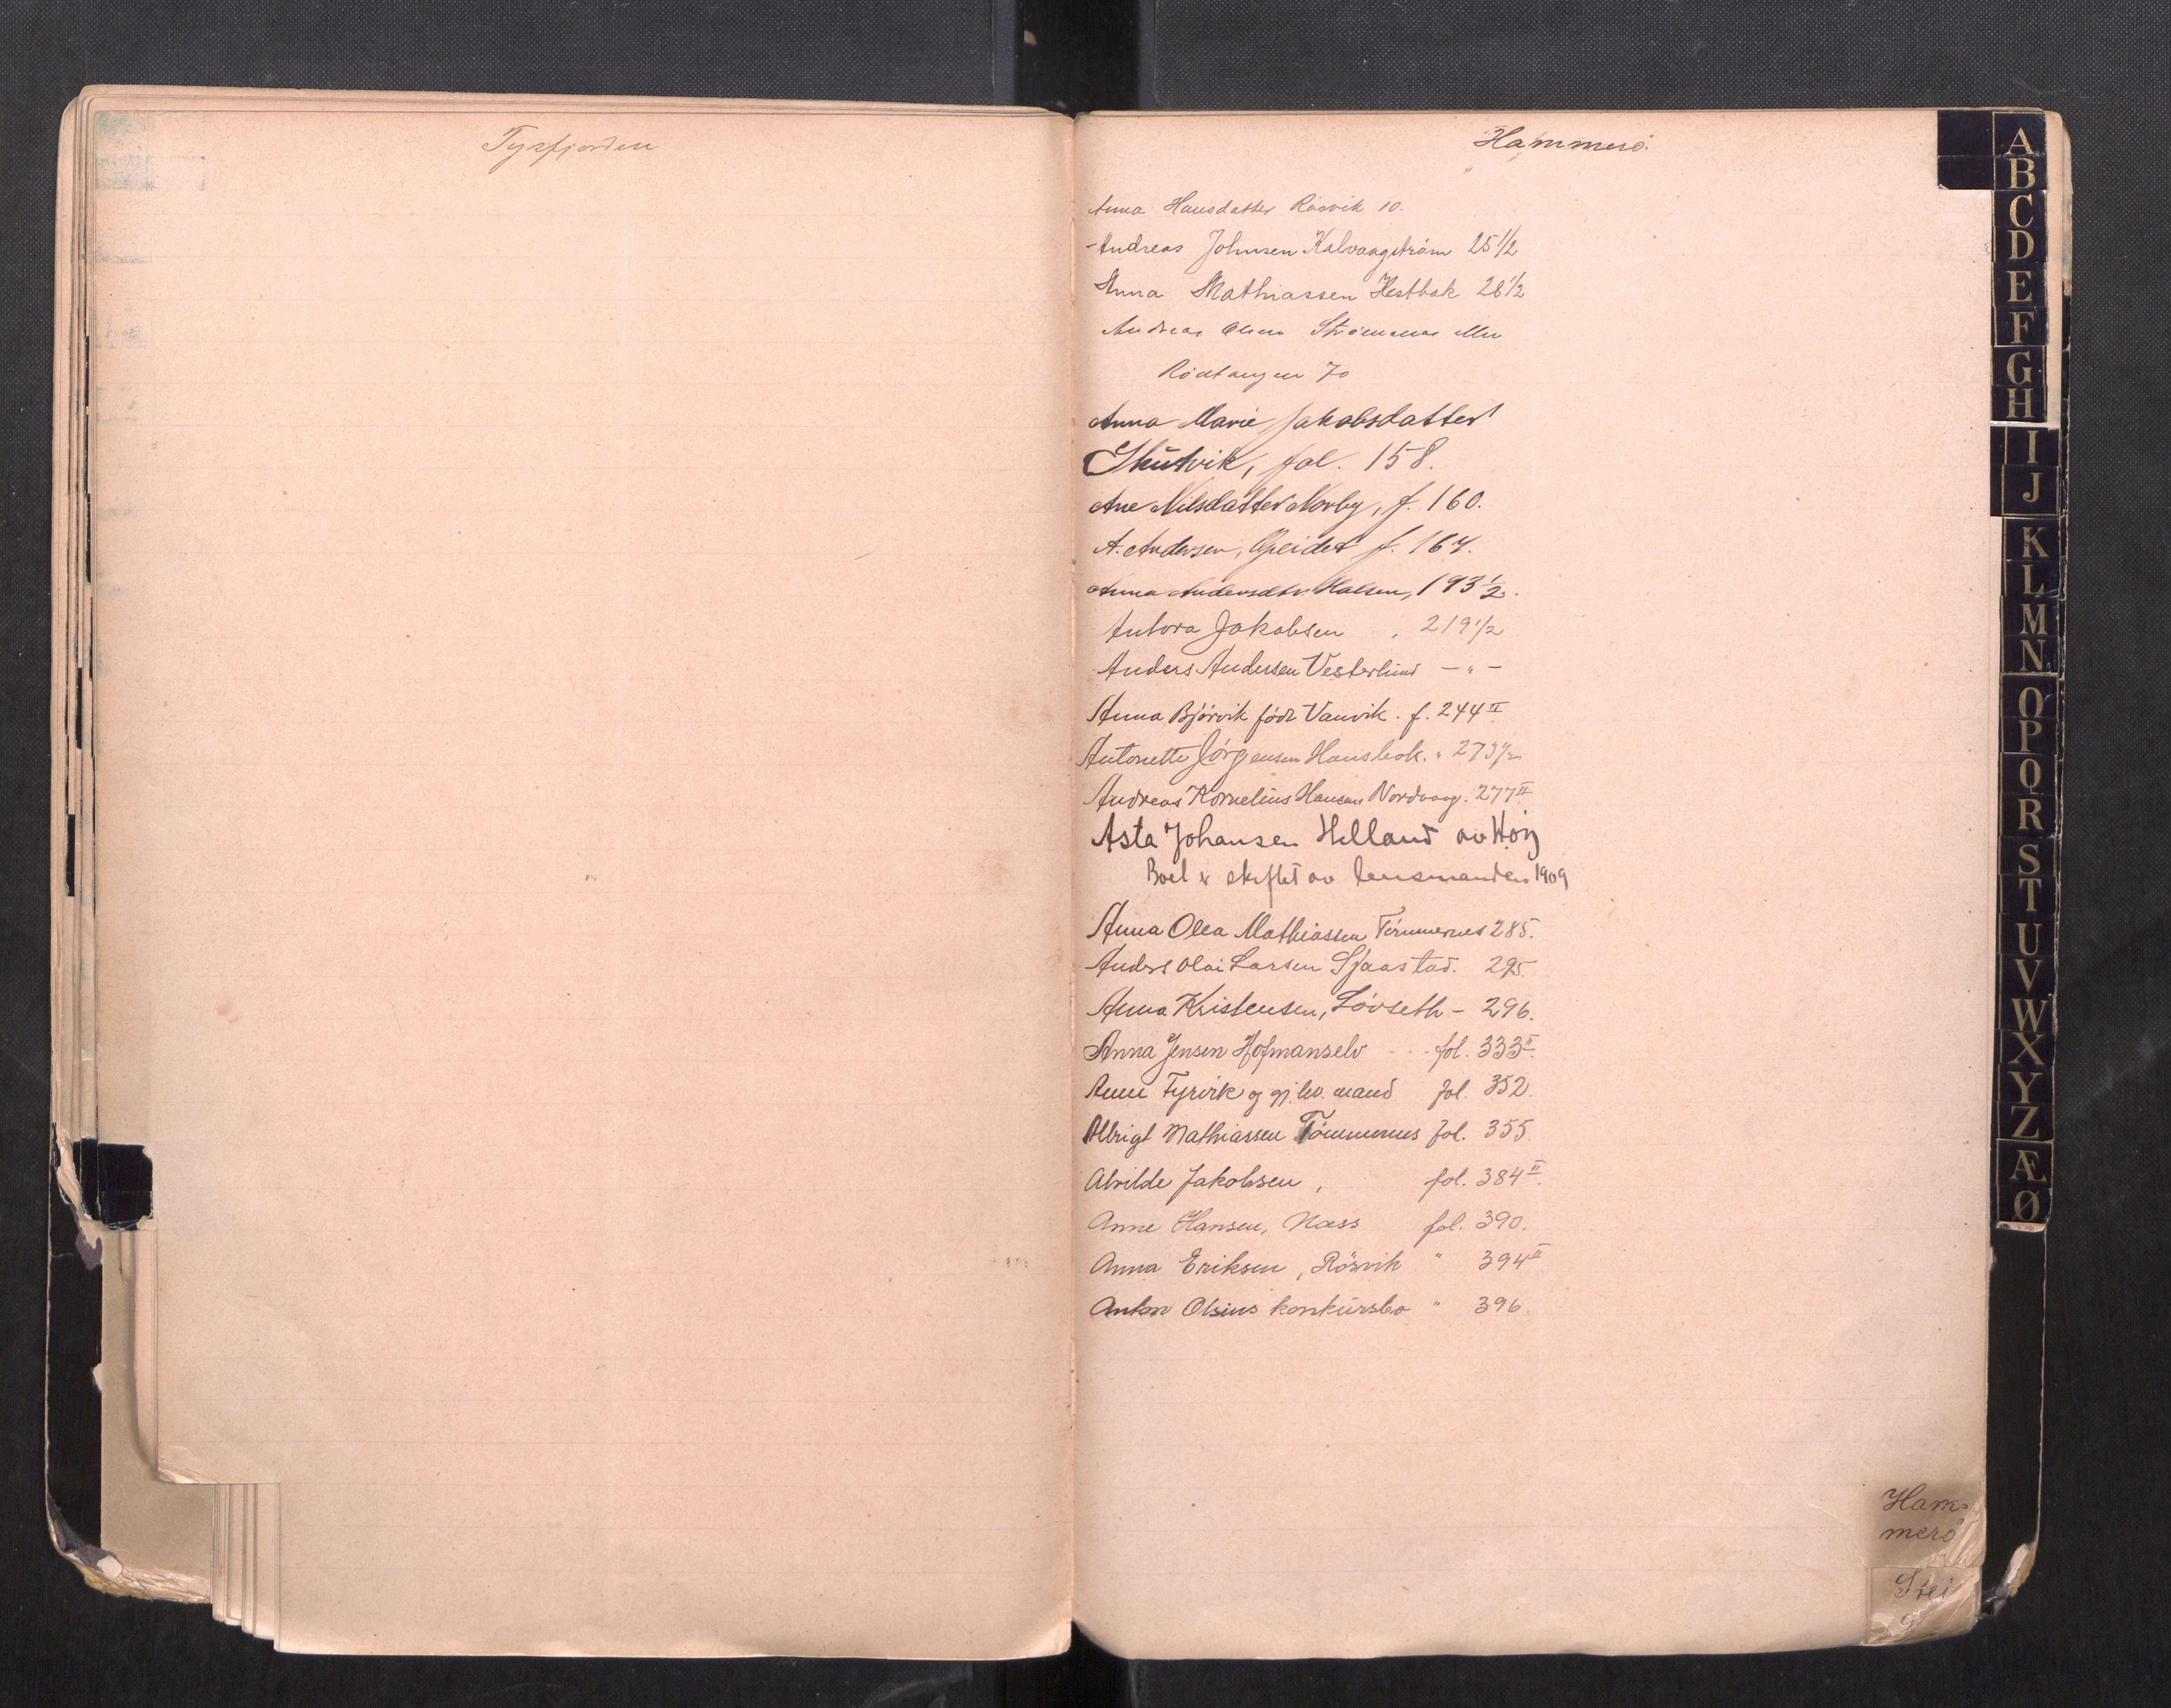 Tysfjorden
Hammerö.
Anna Hansdatter Rösvik 10.
Andreas Johnsen Kalvaagström 25 1/2
Anna Mathiassen Hestbak 28 1/2
Andreas Olsen Strömsnes eller
Rödtangen 70
Anna Marie Jakobsdatter
Skutvik, fol. 158.
Ane Nilsdatter Norby, f. 160.
A. Andersen, Opeidet f. 167.
Anna Andersdtr. Halsen, 193 1/2.
Antora Jakobsen , 219 1/2
Anders Andersen Vesterlund — " —
Anna Björvik född Vanvik. f. 244 II
Antonette Jörgensen Hansbak. " 273 1/2
Andreas Kornelius Hansen Nordvaag. 277 II
Asta Johansen Helland av Høiz
Boet er skiftet av lensmanden 1909
Anna Olea Mathiassen Tömmernes 285.
Anders Olai Larsen Sjaastad. 295.
Anna Kristensen, Lövseth – 296.
Anna Jensen Hofmanselv - - - fol. 333 II
Anne Tyrvik og gj.lev. mand fol. 352.
Albrigt Mathiassen Tömmernes fol. 355.
Alvilde Jakobsen , fol. 384 II
Anne Hansen, Næss fol. 390.
Anna Eriksen, Rösvik " 394 II
Anton Olsens konkursbo " 396.
Ham-
merö
A
B
C
D
E
F
G
H
I
J
K
L
M
N
O
P
Q
R
S
T
U
V
W
X
Y
Z
Æ
Ø